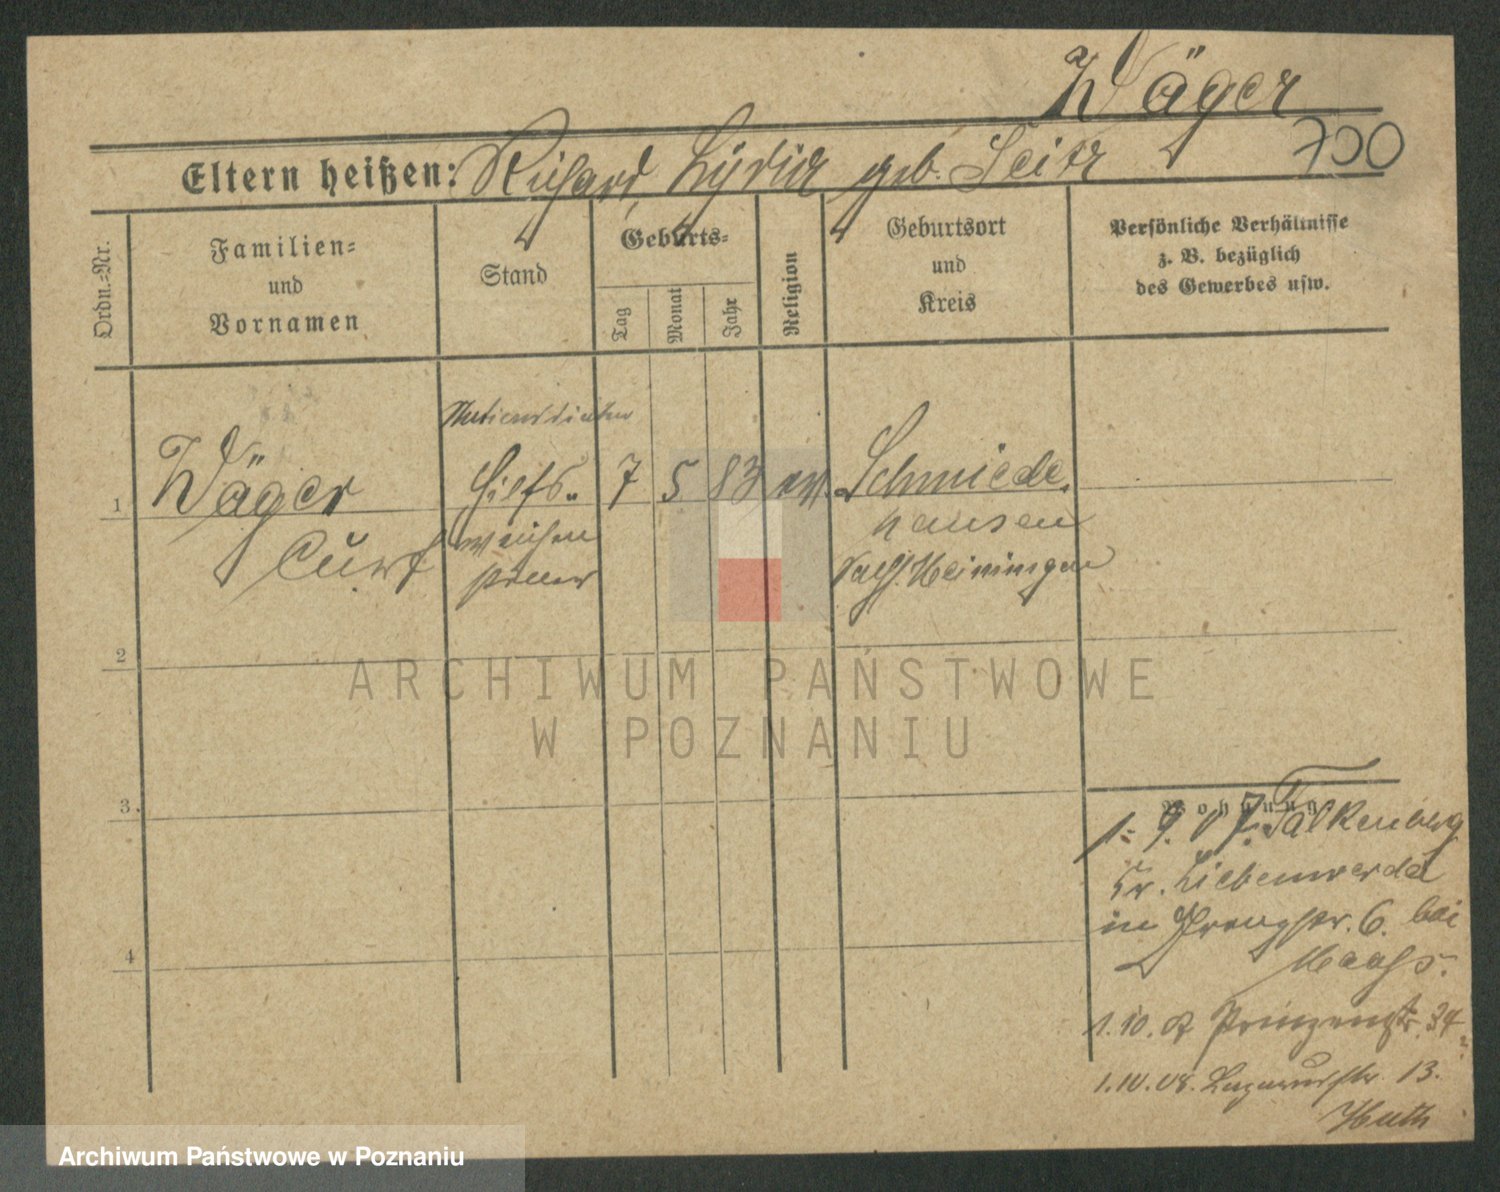 Wäger
Eltern heißen: Richard, Lydia geb. Seitz
700
Ordn.=Nr.
Familien=
und
Vornamen
Stand
Geburts=
Tag
Monat
Jahr
Religion
Geburtsort
und
Kreis
Persönliche Verhältnisse
z. B. bezüglich
des Gewerbes usw.
1 Wäger
Curt
Hilfs-
weichen
steller
7 5 83 ev.
Schmiede
hausen
Sachs. Meiningen
2
3.
4
Wohnung
1. 9. 07. Falkenberg
Kr. Liebenwerda
in 6. bei
Maass.
1.10.07 Prinzenstr. 34
1.10.08. Lazarusstr. 13.
Huth
ARCHIWUM PAŃSTWOWE
W POZNANIU
Archiwum Państwowe w Poznaniu